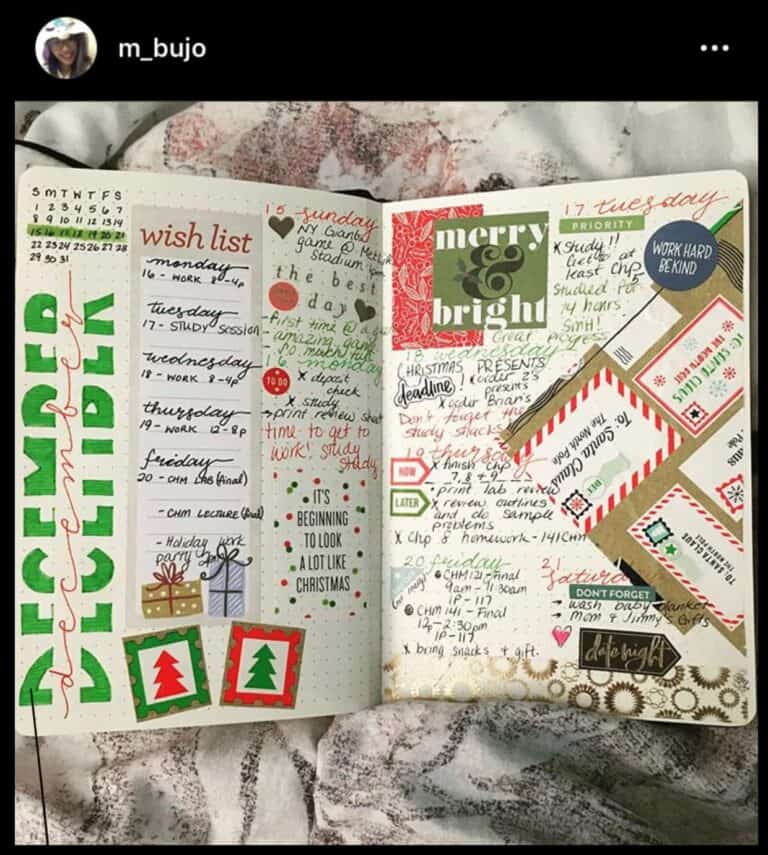 m_bujo
S M T W T F S
1 2 3 4 5 6 7
8 9 10 11 12 13 14
15 16 17 18 19 20 21
22 23 24 25 26 27 28
29 30 31
DECEMBER
december
wish list
monday
16 - WORK 8-4p
tuesday
17 - STUDY SESSION
wednesday
18 - WORK 8-4p
thursday
19 - WORK 12-8p
friday
20 - CHM LAB (final)
- CHM LECTURE (final)
- Holiday work
party
15 sunday
NY Giants
game @
Stadium
the best
day
- first time @ a
- amazing game
16 monday
TO DO
x deposit
check
x study
→ print review sheet
time to get to
work! study
study
IT'S
BEGINNING
TO LOOK
A LOT LIKE
CHRISTMAS
merry
&
bright
17 tuesday
PRIORITY
x Study!!
at
least Chp 5
Studied for
14 hours
SMH!
Great progress
WORK HARD
BE KIND
18 wednesday
CHRISTMAS PRESENTS
deadline!
x order
presents
x order Brian's
Don't forget the
study snacks
19 thursday
NOW
x finish chp
7, 8 + 9
LATER
• print lab review
x review outlines
and do sample
problems
x Chp 8 homework - 141CHM
20 friday
CHM 121 - Final
9am - 11:30am
1P-117
CHM 141 - Final
12p - 2:30pm
1P-117
x bring snacks + gift.
TO SANTA CLAUS
THE NORTH POLE
To: Santa Claus
The North Pole
TO: SANTA CLAUS
THE NORTH POLE
21
saturday
DON'T FORGET
→ wash baby blanket
→ mom & Jimmy's Gifts
date night